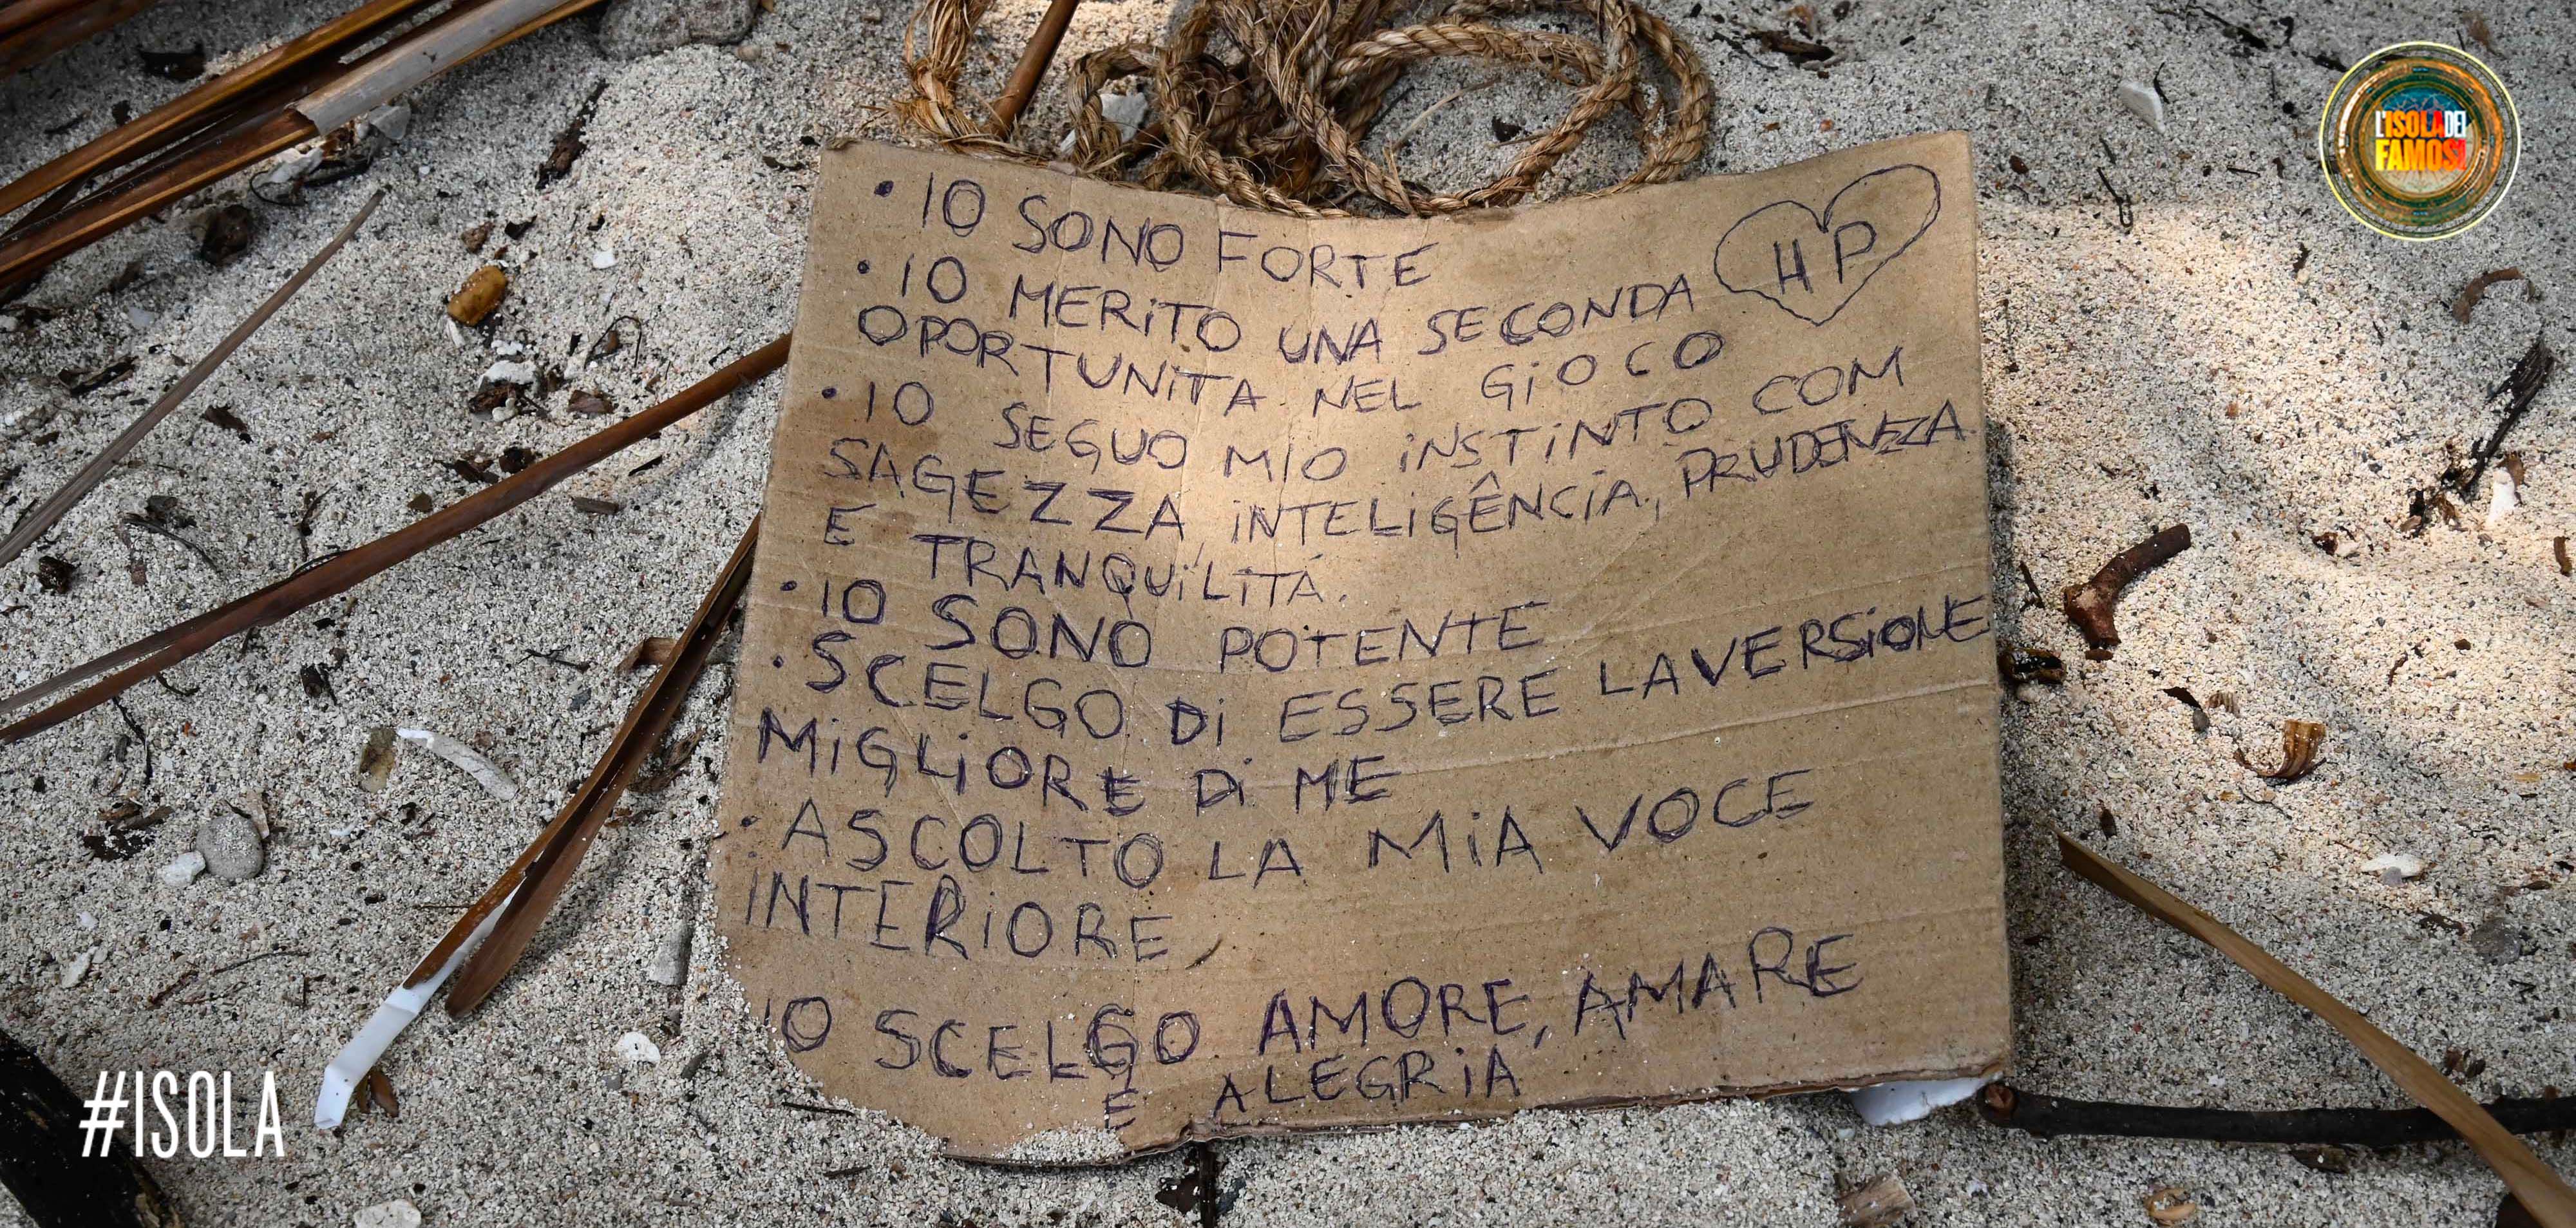 L'ISOLA DEI
FAMOSI
• IO SONO FORTE
HP
• IO MERiTO UNA SECONDA
OPORTUNiTA NEL GiOCO
• IO SEGUO MIO iNSTiNTO COM
SAGEZZA iNTELiGÊNCiA, PRUDENZA
E TRANQUiLITÁ.
• IO SONO POTENTE
• SCELGO Di ESSERE LA VERSiONE
MiGLiORE Di ME
• ASCOLTO LA MiA VOCE
INTERiORE
IO SCELGO AMORE, AMARE
E ALEGRiA
#ISOLA